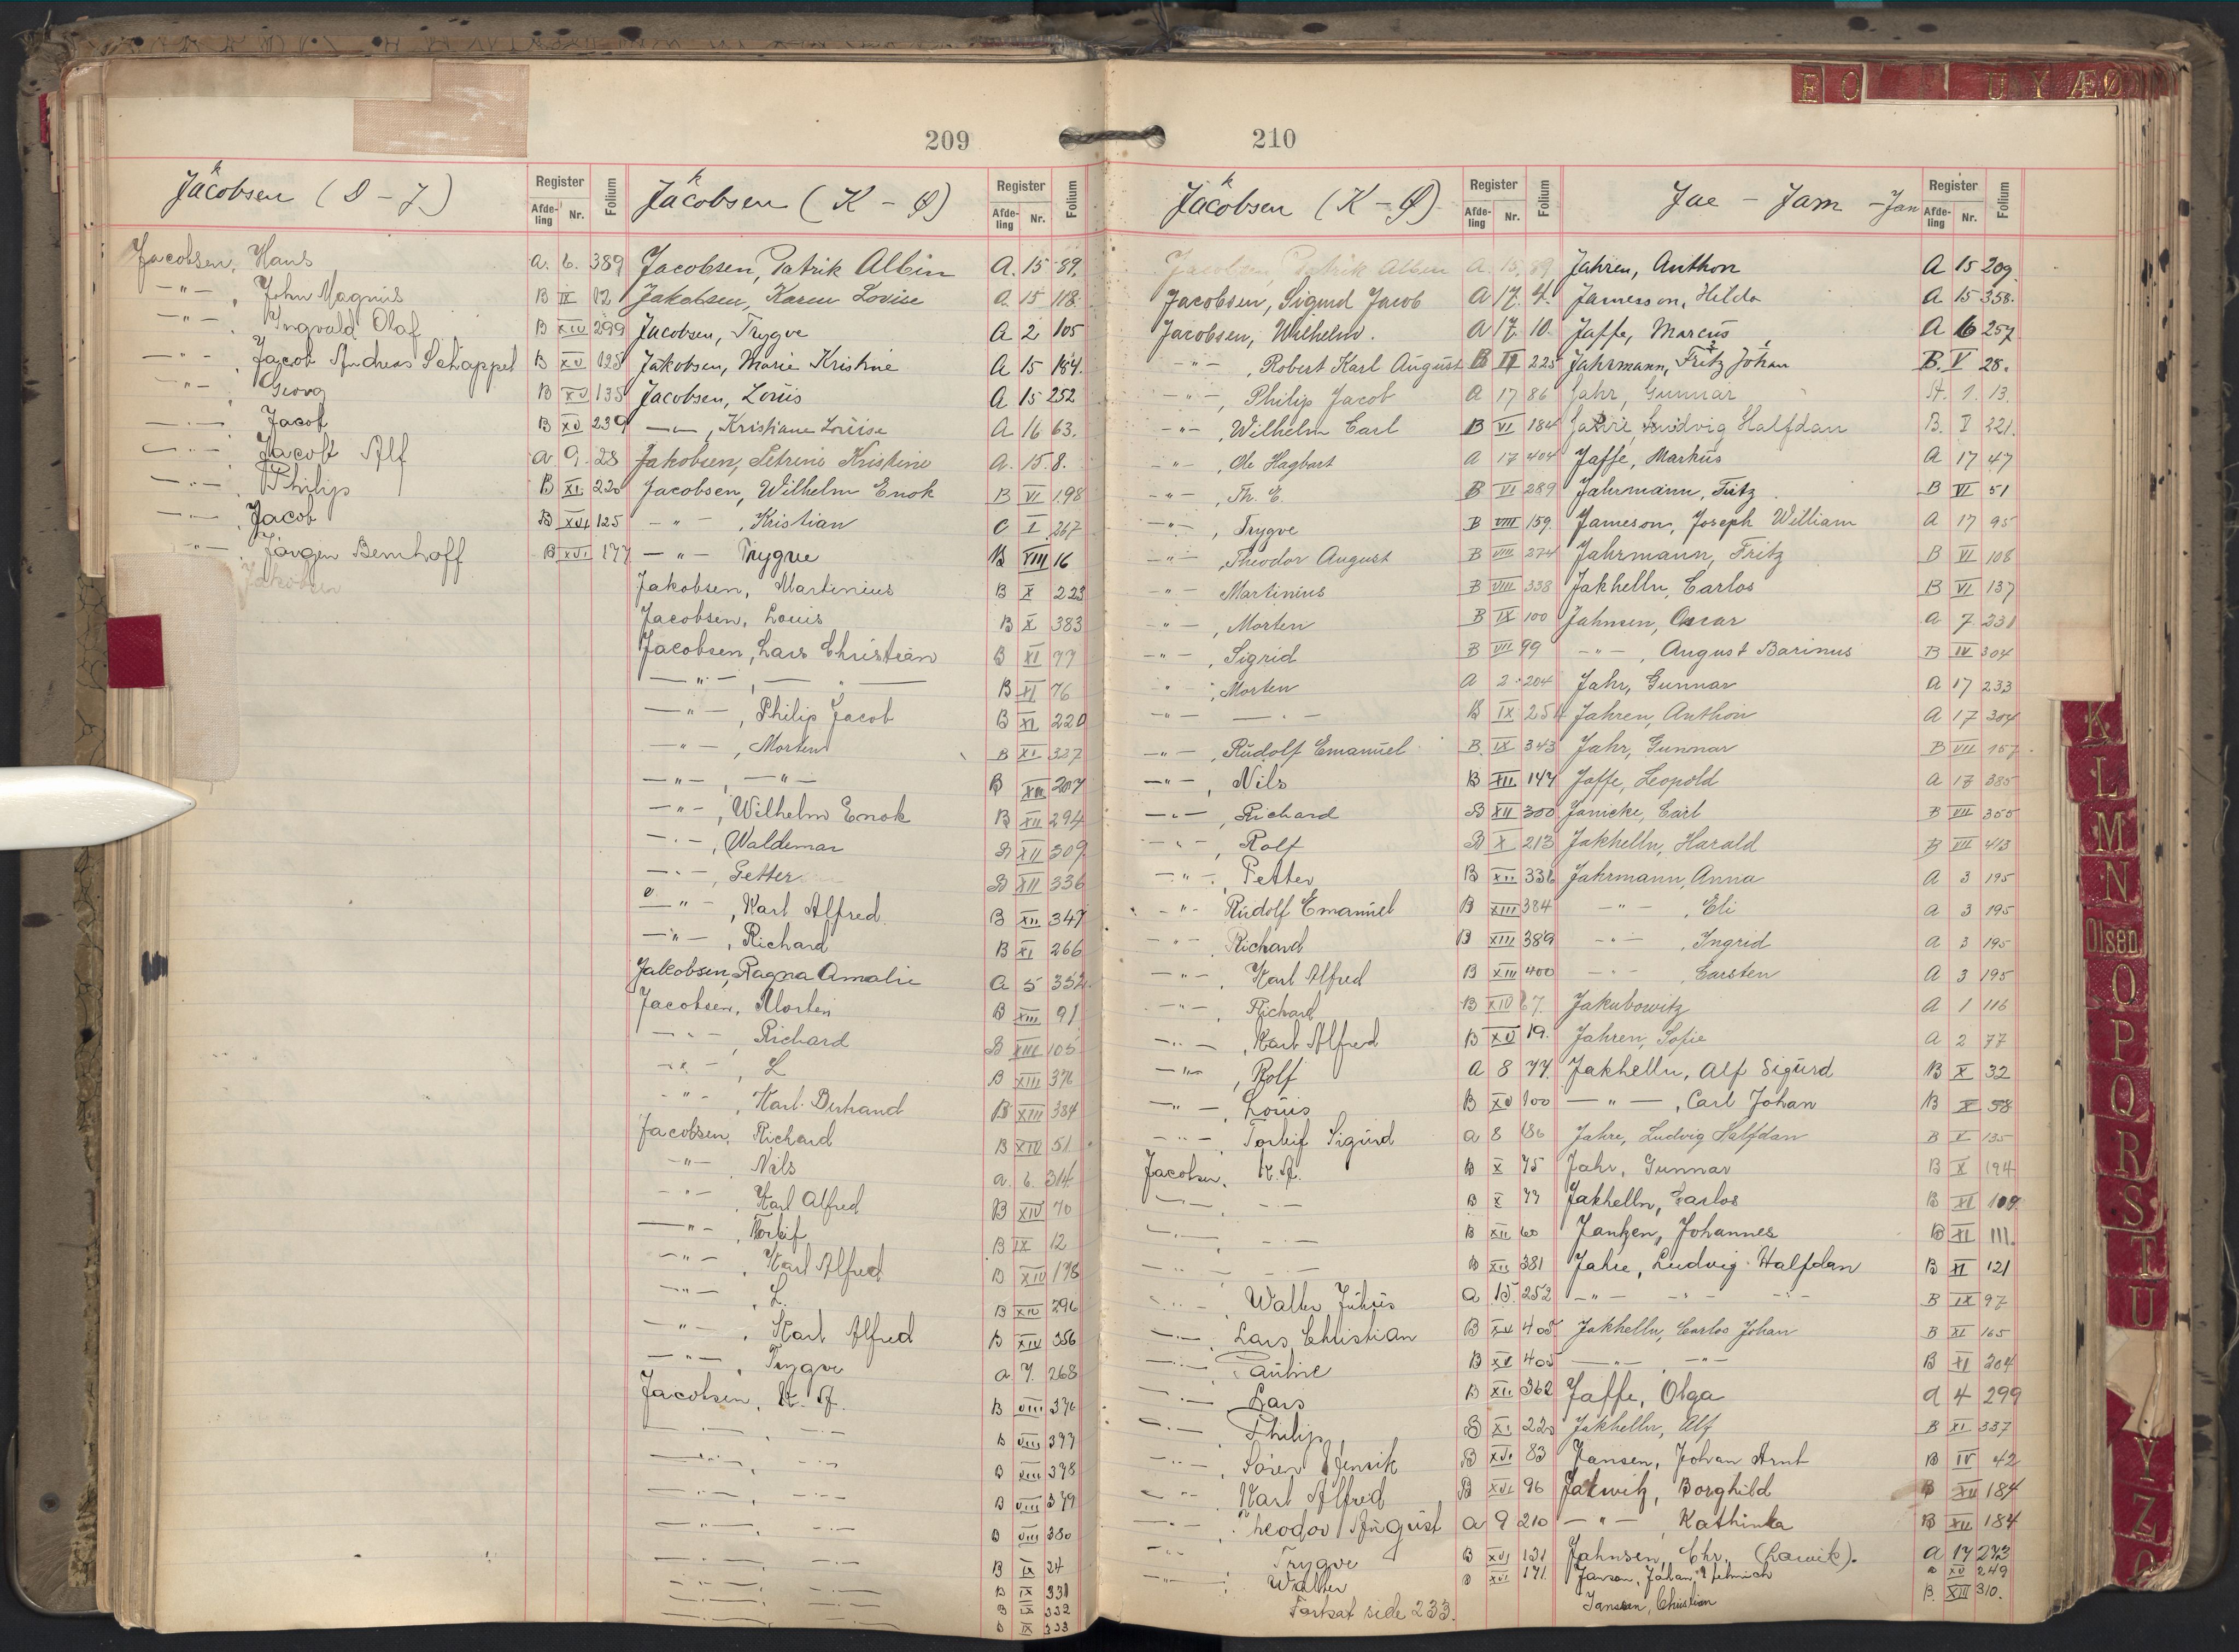 209
Jacobsen (D - J)
k
Register
Afde-ling
Nr.
Folium
Jacobsen, Hans A. 6. 389
-"- , John Magnus B IX 12
-"- , Ingvald Olaf B XIV 299
-"- , Jacob Andreas Schappel B XV 128
-"- , Georg B XV 135
-"- , Jacob B XV 239
-"- , Jacob Alf A 9. 28
-"- , Philip B XI 220
-"- , Jacob B XVI 125
-"- , Jørgen Bernhoff B XVI 177
Jakobsen
Jacobsen (K - Ø)
k
Register
Afde-ling
Nr.
Folium
Jacobsen, Patrik Albin A. 15 89.
Jakobsen, Karen Lovise A. 15 118.
Jacobsen, Trygve A 2 105
Jakobsen, Marie Kristine A 15 184.
Jacobsen, Louis A 15 252
-"- , Kristiane Louise A 16 63.
Jakobsen, Petrine Kristine A. 15. 8.
Jacobsen, Wilhelm Enok B VI 198
-"- , Kristian C I 267
-"- Trygve B VIII 16
Jakobsen, Martinius B X 223
Jacobsen, Louis B X 383
Jacobsen, Lars Christian B XI 77
-"- , - " - B XI 76
-"- , Philip Jacob B XI 220
-"- , Morten B XI 327
-"- , -"- B XII 207
-"- , Wilhelm Enok B XII 294
-"- , Waldemar B XII 309
-"- , Petter B XII 336
-"- , Karl Alfred B XII 347
-"- , Richard B XI 266
Jakobsen, Ragna Amalie A 5 352
Jacobsen, Morten B XIII 91
-"- , Richard B XIII 105
-"- , L B XIII 376
-"- , Karl B XIII 384
Jacobsen, Richard B XIV 51
-"- Nils A. 6. 314
-"- , Karl Alfred B XIV 70
-"- , Torleif B IX 12
-"- , Karl Alfred B XIV 178
-"- , L. B XIV 296
-"- , Karl Alfred B XIV 356
-"- , Trygve A 7. 268
Jacobsen, K. A. B VIII 376
-"- , -"- B VIII 377
-"- , -"- B VIII 378
-"- , -"- B VIII 379
-"- , -"- B VIII 380
-"- , -"- B IX 24
-"- , -"- B IX 331
-"- , -"- B IX 332
-"- , -"- B IX 333
210
Jacobsen (K - Ø)
k
Register
Afde-ling
Nr.
Folium
Jacobsen, Patrik Albin A. 15. 89
Jacobsen, Sigurd Jacob A 17. 4.
Jacobsen, Wilhelm. A 17. 10.
-"- , Robert Karl August B II 225
-"- , Philip Jacob A 17 86
-"- , Wilhelm Carl B VI 184
-"- , Ole Hagbart A 17 404
-"- , Th. E. B VI 289
-"- , Trygve B VIII 159.
-"- , Theodor August B VIII 274
-"- Martinius B VIII 338
-"- , Morten B IX 100
-"- , Sigrid B VII 99
-"- , Morten A 2. 204
-"- -"- B IX 254
-"- , Rudolf Emanuel B. IX 343
-"- , Nils B XII 147
-"- , Richard B XII 300
-"- , Rolf B X 213
-"- , Petter B XII 336
-"- Rudolf Emanuel B XIII 384
-"- Richard B XIII 389
-"- , Karl Alfred B XIII 400
-"- , Richard B XIV 67.
-"- , Karl Alfred B XV 19.
-"- , Rolf A 8 77.
-"- , Louis B XV 100
-"- , Torleif Sigurd A 8 186
Jacobsen, K. A. B X 75
-"- , -"- B X 77
-"- , -"- B XII 60
-"- -"- B XII 381
-"- , Walter Julius A 15. 252
-"- , Lars Christian B XV 405
-"- , Pauline B XV 405
-"- Lars B XII 362
-"- , Philip, B XI 220
-"- , Søren Henrik B XVI 83
-"- , Karl Alfred B XVI 96
-"- , Theodor August A 9 210
-"- Trygve B XVI 131
-"- , Walter B XVI 171.
Fortsat side 233.
Jae - Jam - Jan
Register
Afde-ling
Nr.
Folium
Jahren, Anthon A 15 209.
Jamesson, Hilda A 15 358.
Jaffe, Marcus A 16 257
Jahrmann, Fritz Johan B. V 28.
Jahr, Gunnar A. 1. 13.
Jahre, Ludvig Halfdan B. I 221.
Jaffe, Markus A 17 47
Jahrmann, Fritz B VI 51
Jameson, Joseph William A 17 95
Jahrmann, Fritz B VI 108
Jakhelln, Carlos B VI 137
Jahnsen, Oscar A 7 231
-"- , August Barinus B IV 304
Jahr, Gunnar A 17 233
Jahren, Anthon A 17 304
Jahr, Gunnar B VII 157
Jaffe, Leopold A 17 385
Janicke, Carl B VII 355
Jakhelln, Harald B VII 413
Jahrmann, Anna A 3 195
-"- , Eli A 3 195
-"- , Ingrid A 3 195
-"- , Carsten A 3 195
Jakubowitz A 1 116
Jahren, Sofie A 2 77
Jakhelln, Alf Sigurd B X 32
-"- , Carl Johan B X 58
Jahre, Ludvig Halfdan B X 135
Jahr, Gunnar B X 194
Jakhelln, Carlos B XI 109
Jantzen, Johannes B XI 111.
Jahre, Ludvig Halfdan B XI 121
-"- -"- -"- B IX 97
Jakhelln, Carlos Johan B XI 165
-"- , -"- B XI 204
Jaffe, Olga A 4 299
Jakhelln, Alf B XI 337
Jansen, Johan Arnt B IV 42
Borghild B XII 184
-"- , Kathinka B XII 184
Jahnsen, Chr. (Larvik). A 17 273
Janson, Johan B XV 249
Janssen, Christian B. XIII 310.
E O U Y Æ Ø
K
L
M
N
Olsen
O
P
Q
R
S
T
U
Y
Z